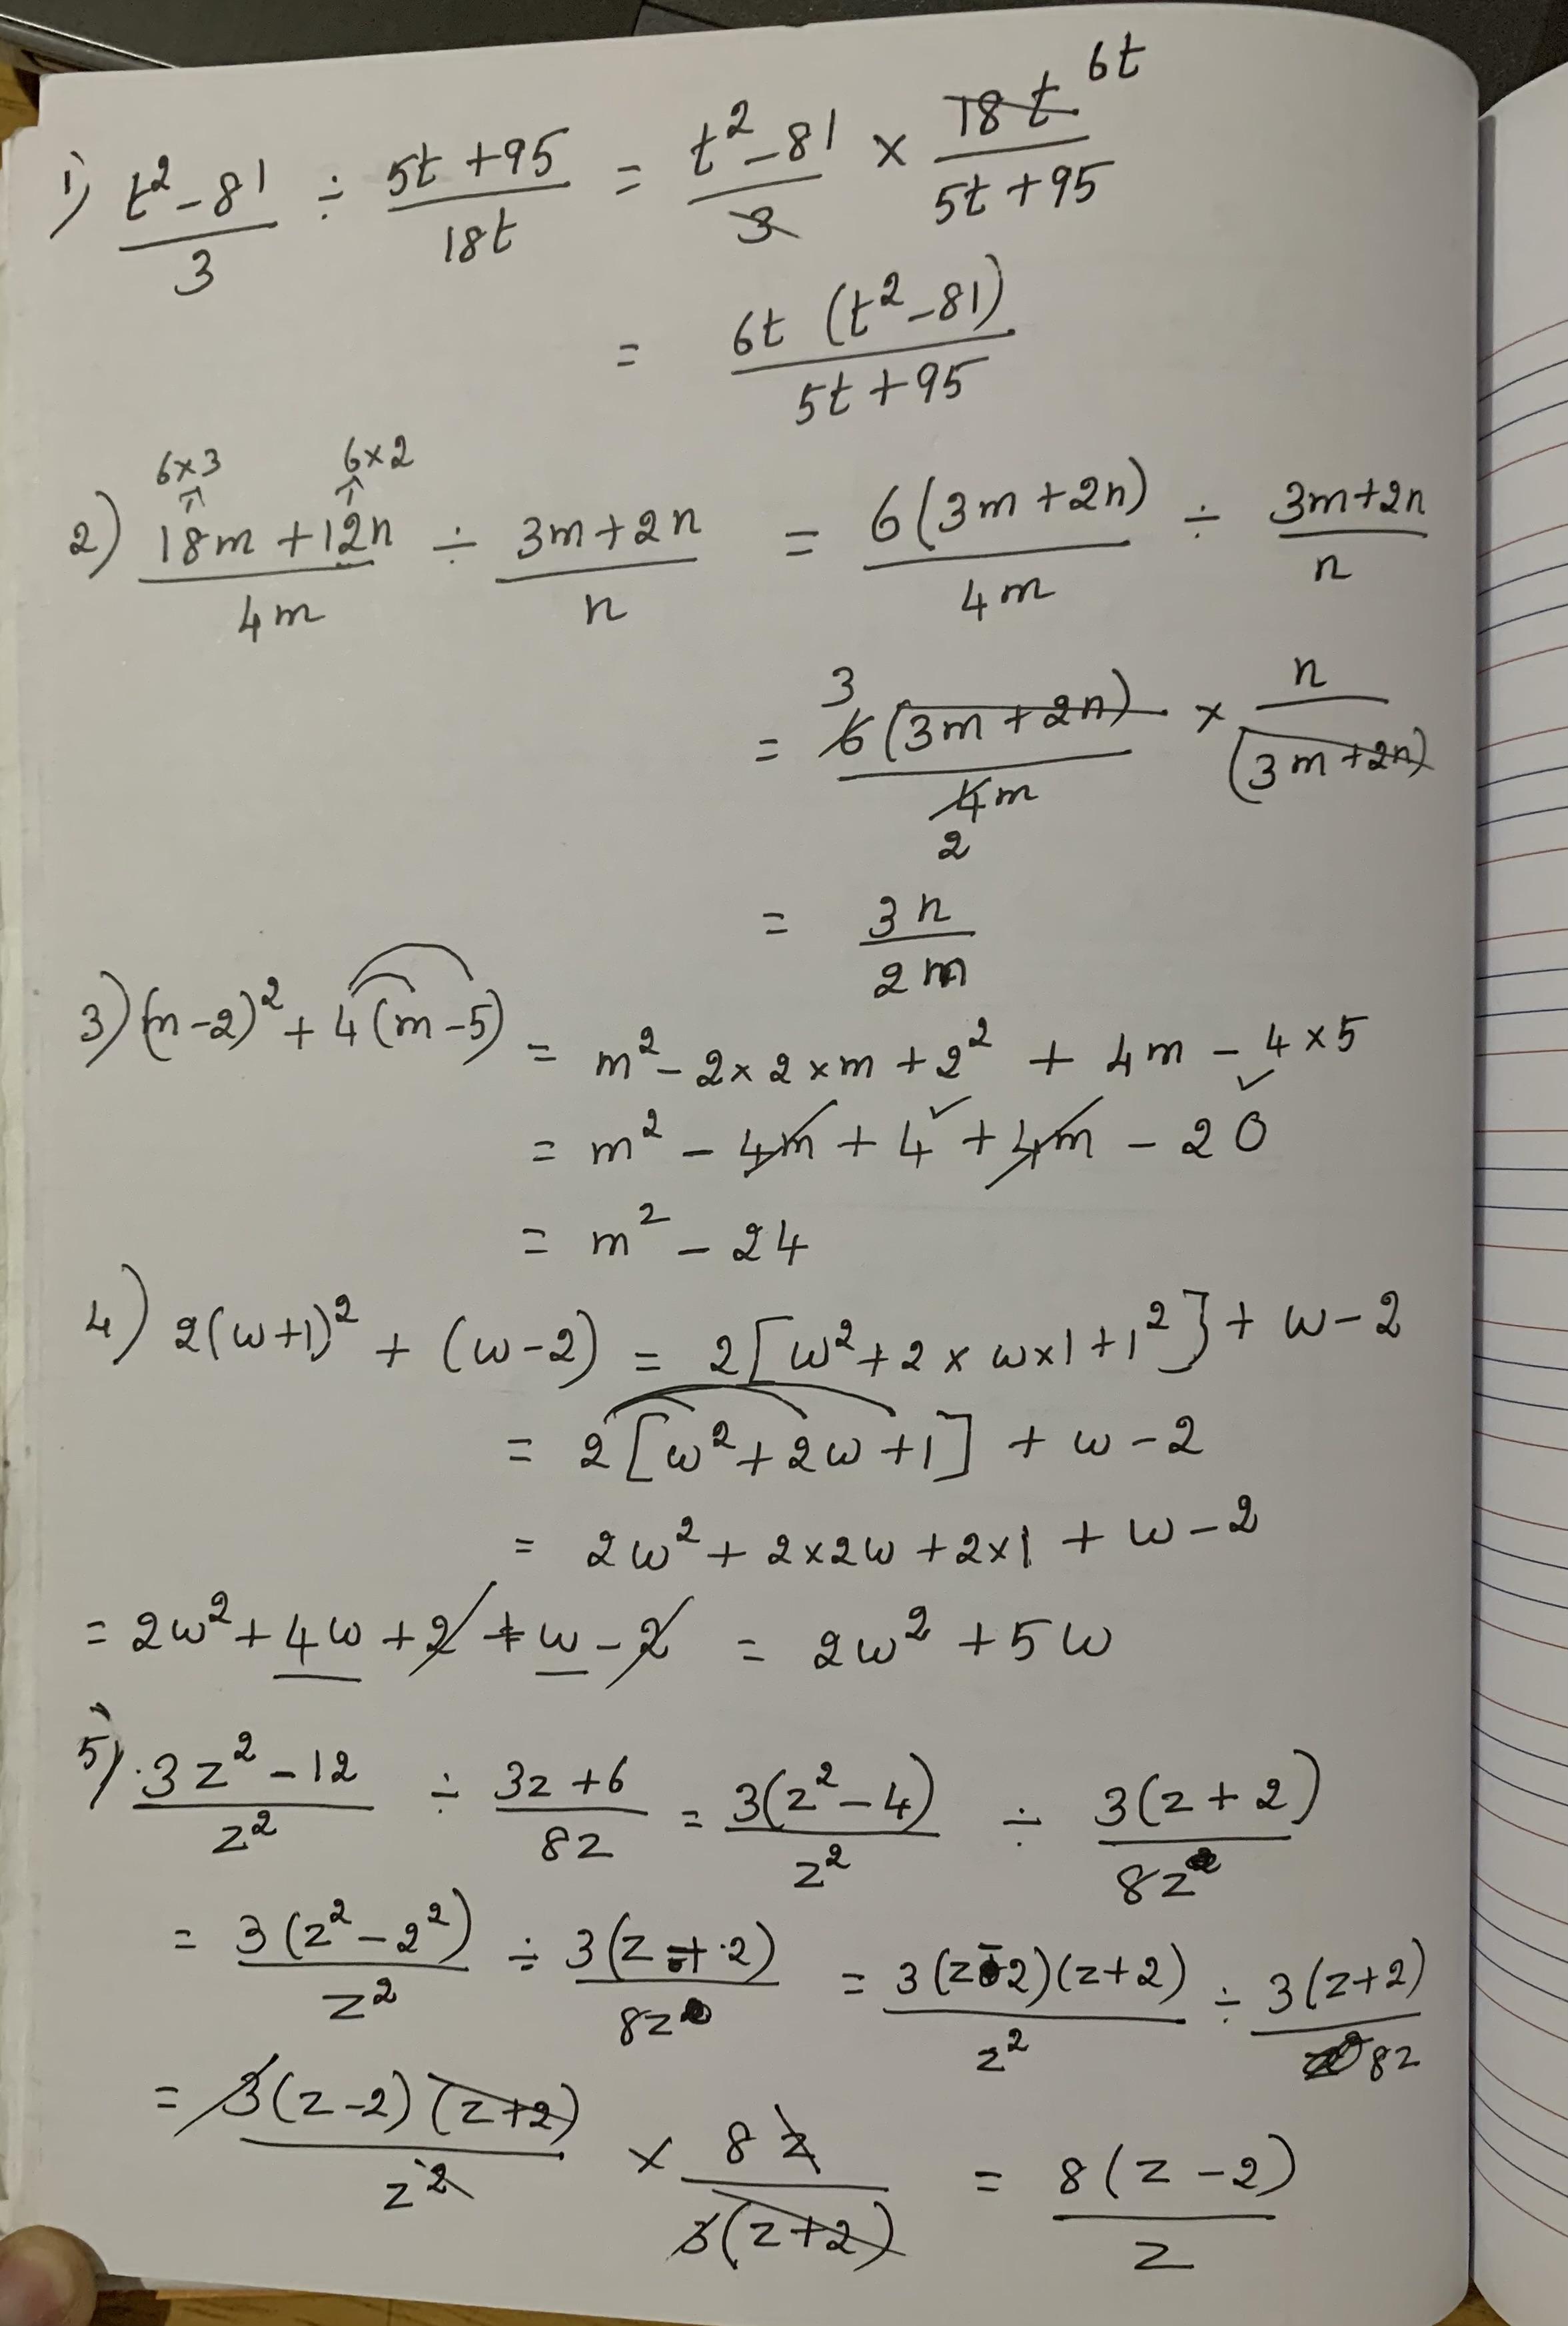 1) (t² - 81)/3 ÷ (5t + 95)/18t = (t² - 81)/3 × 18t/(5t + 95) 6t
= 6t (t² - 81)/(5t + 95)
6×3 6×2
2) (18m + 12n)/4m ÷ (3m + 2n)/n = 6(3m + 2n)/4m ÷ (3m + 2n)/n
3
= 6(3m + 2n)/4m × n/(3m + 2n)
2
= 3n/2m
3) (m - 2)² + 4(m - 5) = m² - 2 × 2 × m + 2² + 4m - 4 × 5
= m² - 4m + 4 + 4m - 20
= m² - 24
4) 2(w + 1)² + (w - 2) = 2[w² + 2 × w × 1 + 1²] + w - 2
= 2[w² + 2w + 1] + w - 2
= 2w² + 2×2w + 2×1 + w - 2
= 2w² + 4w + 2 + w - 2 = 2w² + 5w
5) (3z² - 12)/z² ÷ (3z + 6)/8z = 3(z² - 4)/z² ÷ 3(z + 2)/8z
= 3(z² - 2²)/z² ÷ 3(z + 2)/8z = 3(z - 2)(z + 2)/z² ÷ 3(z + 2)/8z
= 3(z - 2)(z + 2)/z² × 8z/3(z + 2) = 8(z - 2)/z